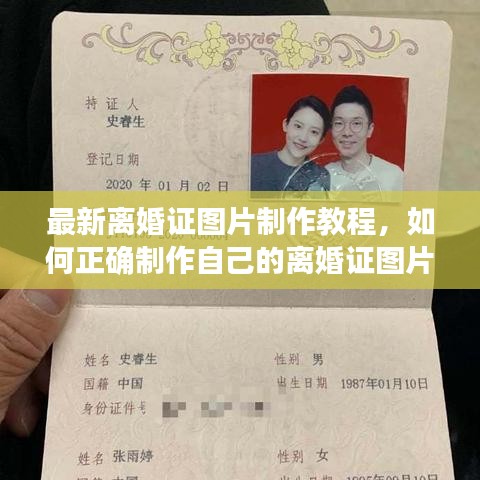 持证人
史睿生
登记日期
2020年01月02日
最新离婚证图片制作教程，如
何正确制作自己的离婚证图片
姓名 史睿生 性别 男
国籍 中国 出生日期 1987年01月10日
身份证件号
姓名 张雨婷 性别 女